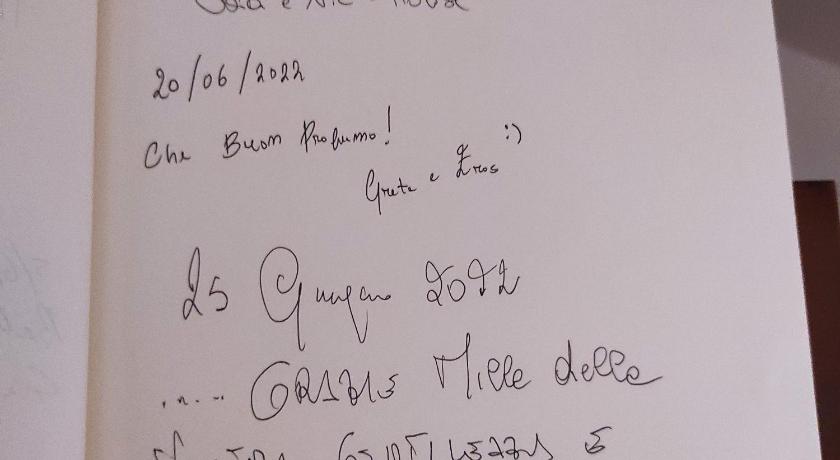 20/06/2022
Che Buon Profumo!
Greta e Eros :)
25 Giugno 2022
..... GRAZIE Mille delle
GENTILEZZA E